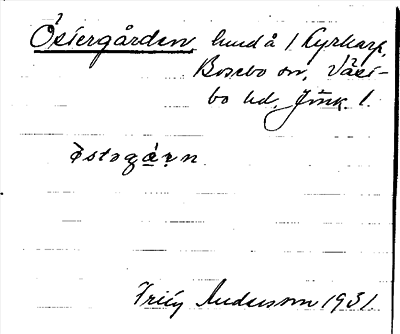 Östergården, hmd å 1 Kyrkarp,
Bosebo sn, Väst-
bo hd, Jönk. l.
östəgạ̊ṛn
Frity Andersson 1931.